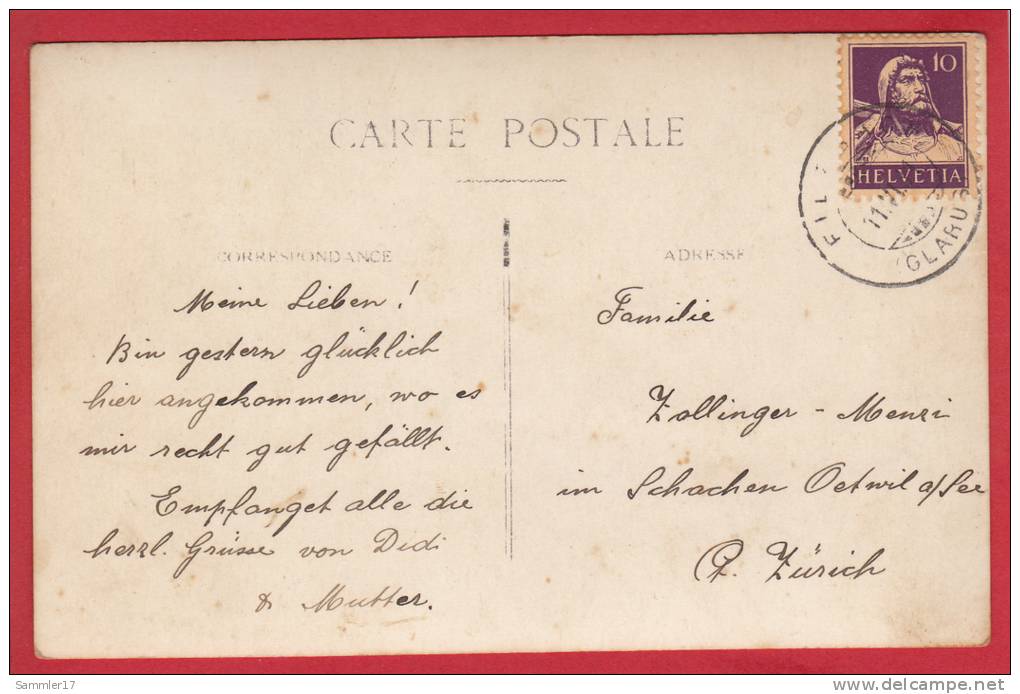 CARTE POSTALE
10
HELVETIA
11.VI.
(GLARUS)
CORRESPONDANCE
Meine Lieben!
Bin gestern glücklich
hier angekommen, wo es
mir recht gut gefällt.
Empfanget alle die
herzl. Grüsse von Didi
& Mutter.
ADRESSE
Familie
Zollinger - Menzi
im Schachen Oetwil a/See
Ct. Zürich
Sammler17
http://www.delcampe.net